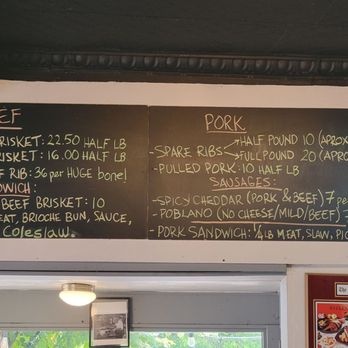 EF
RISKET: 22.50 HALF LB
RISKET: 16.00 HALF LB
F RIB: 36 per HUGE bone!
DWICH:
BEEF BRISKET: 10
EAT, BRIOCHE BUN, SAUCE,
Coleslaw
PORK
- SPARE RIBS
HALF POUND 10 (APROX
FULL POUND 20 (APRO
- PULLED PORK: 10 HALF LB
SAUSAGES:
- SPICY CHEDDAR (PORK & BEEF) 7 pe
- POBLANO (NO CHEESE/MILD/BEEF) 7
- PORK SANDWICH: 1/4 LB MEAT, SLAW, PIC